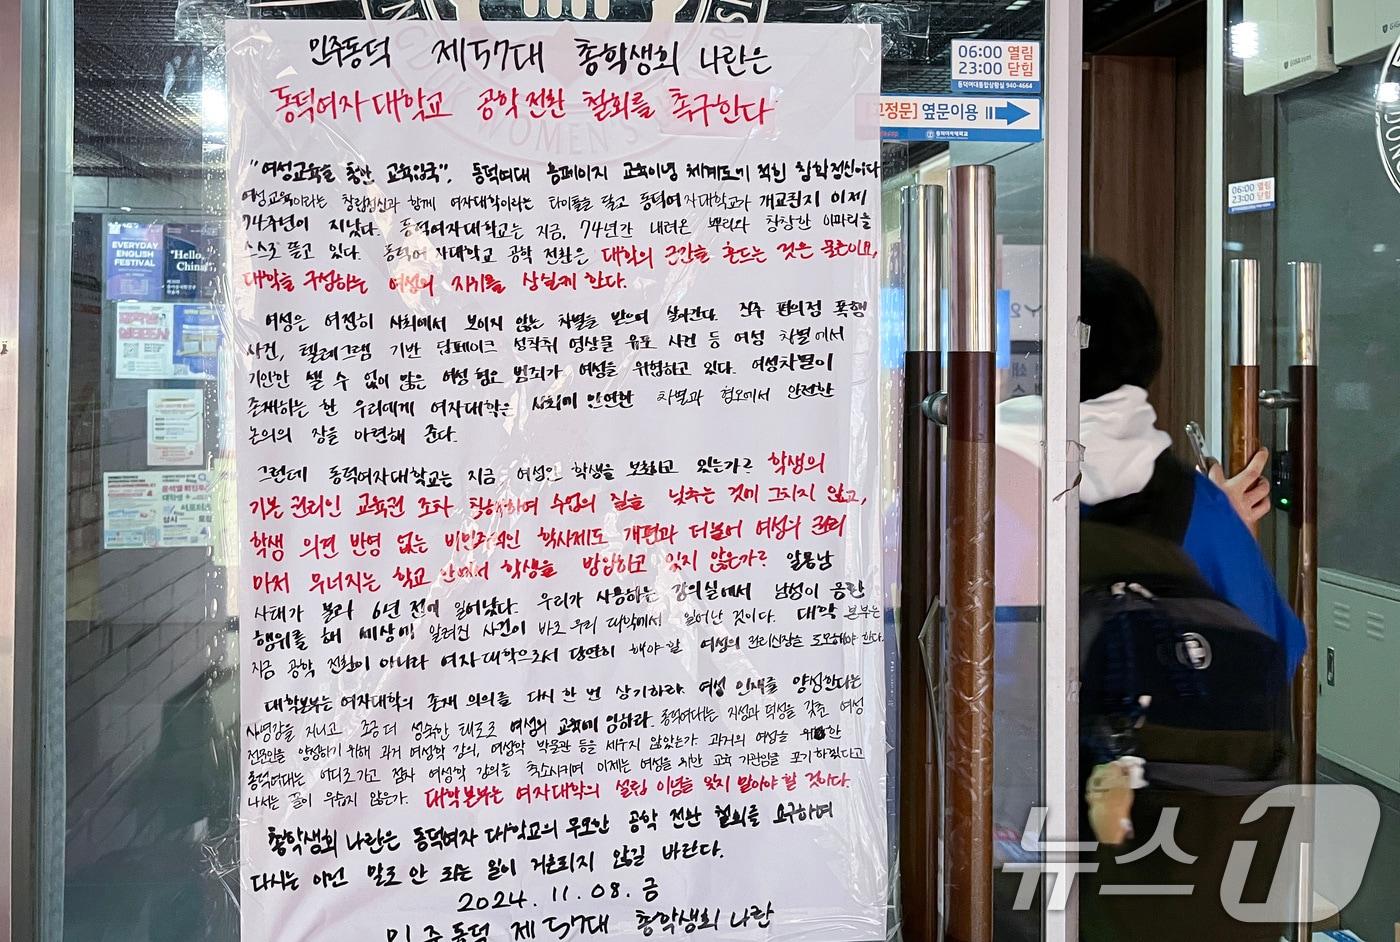 민주동덕 제57대 총학생회 나란은
동덕여자대학교 공학 전환 철회를 촉구한다
"여성교육을 통한 교육입국". 동덕여대 홈페이지 교육이념 체계도에 적힌 창학정신이다
여성교육이라는 창립정신과 함께 여자대학이라는 타이틀을 달고 동덕여자대학교가 개교된지 이제
74주년이 지났다. 동덕여자대학교는 지금, 74년간 내려온 뿌리와 창창한 이파리를
스스로 뜯고 있다. 동덕여자대학교 공학 전환은 대학의 근간을 흔드는 것은 물론이요,
대학을 구성하는 여성의 지위를 상실케 한다.
여성은 여전히 사회에서 보이지 않는 차별을 받으며 살아간다. 진주 편의점 폭행
사건, 텔레그램 기반 딥페이크 성착취 영상물 유포 사건 등 여성 차별에서
기인한 셀 수 없이 많은 여성 혐오 범죄가 여성을 위협하고 있다. 여성차별이
존재하는 한 우리에게 여자대학은 사회에 만연한 차별과 혐오에서 안전한
논의의 장을 마련해 준다.
그런데 동덕여자대학교는 지금 여성인 학생을 보호하고 있는가? 학생의
기본 권리인 교육권 조차 침해하며 수업의 질을 낮추는 것에 그치지 않고,
학생 의견 반영 없는 비민주적인 학사제도 개편과 더불어 여성의 권리
마저 무너지는 학교 안에서 학생을 방임하고 있지 않은가? 알몸남
사태가 불과 6년 전에 일어났다. 우리가 사용하는 강의실에서 남성이 음란
행위를 해 세상에 알려진 사건이 바로 우리 대학에서 일어난 것이다. 대학 본부는
지금 공학 전환이 아니라 여자대학으로서 당연히 해야 할 여성의 권리신장을 도모해야 한다.
대학본부는 여자대학의 존재 의의를 다시 한 번 상기하라. 여성 인재를 양성한다는
사명감을 지니고, 조금 더 성숙한 태도로 여성의 교육에 임하라. 동덕여대는 지성과 덕성을 갖춘 여성
전문인을 양성하기 위해 과거 여성학 강의, 여성학 박물관 등을 세우지 않았는가. 과거의 여성을 위한
동덕여대는 어디로 가고 점차 여성학 강의를 축소시키며 이제는 여성을 위한 교육 기관임을 포기하겠다고
나서는 꼴이 우습지 않은가. 대학본부는 여자대학의 설립 이념을 잊지 말아야 할 것이다.
총학생회 나란은 동덕여자대학교의 무모한 공학 전환 철회를 요구하며
다시는 이런 말로 안 되는 일이 거론되지 않길 바란다.
2024. 11. 08. 금
민주동덕 제57대 총학생회 나란
06:00 열림
23:00 닫힘
동덕여대종합상황실 940-4664
정문] 옆문이용
동덕여자대학교
06:00 열림
23:00 닫힘
EVERYDAY
ENGLISH
FESTIVAL
"Hello,
China
WOMEN'S
뉴스1